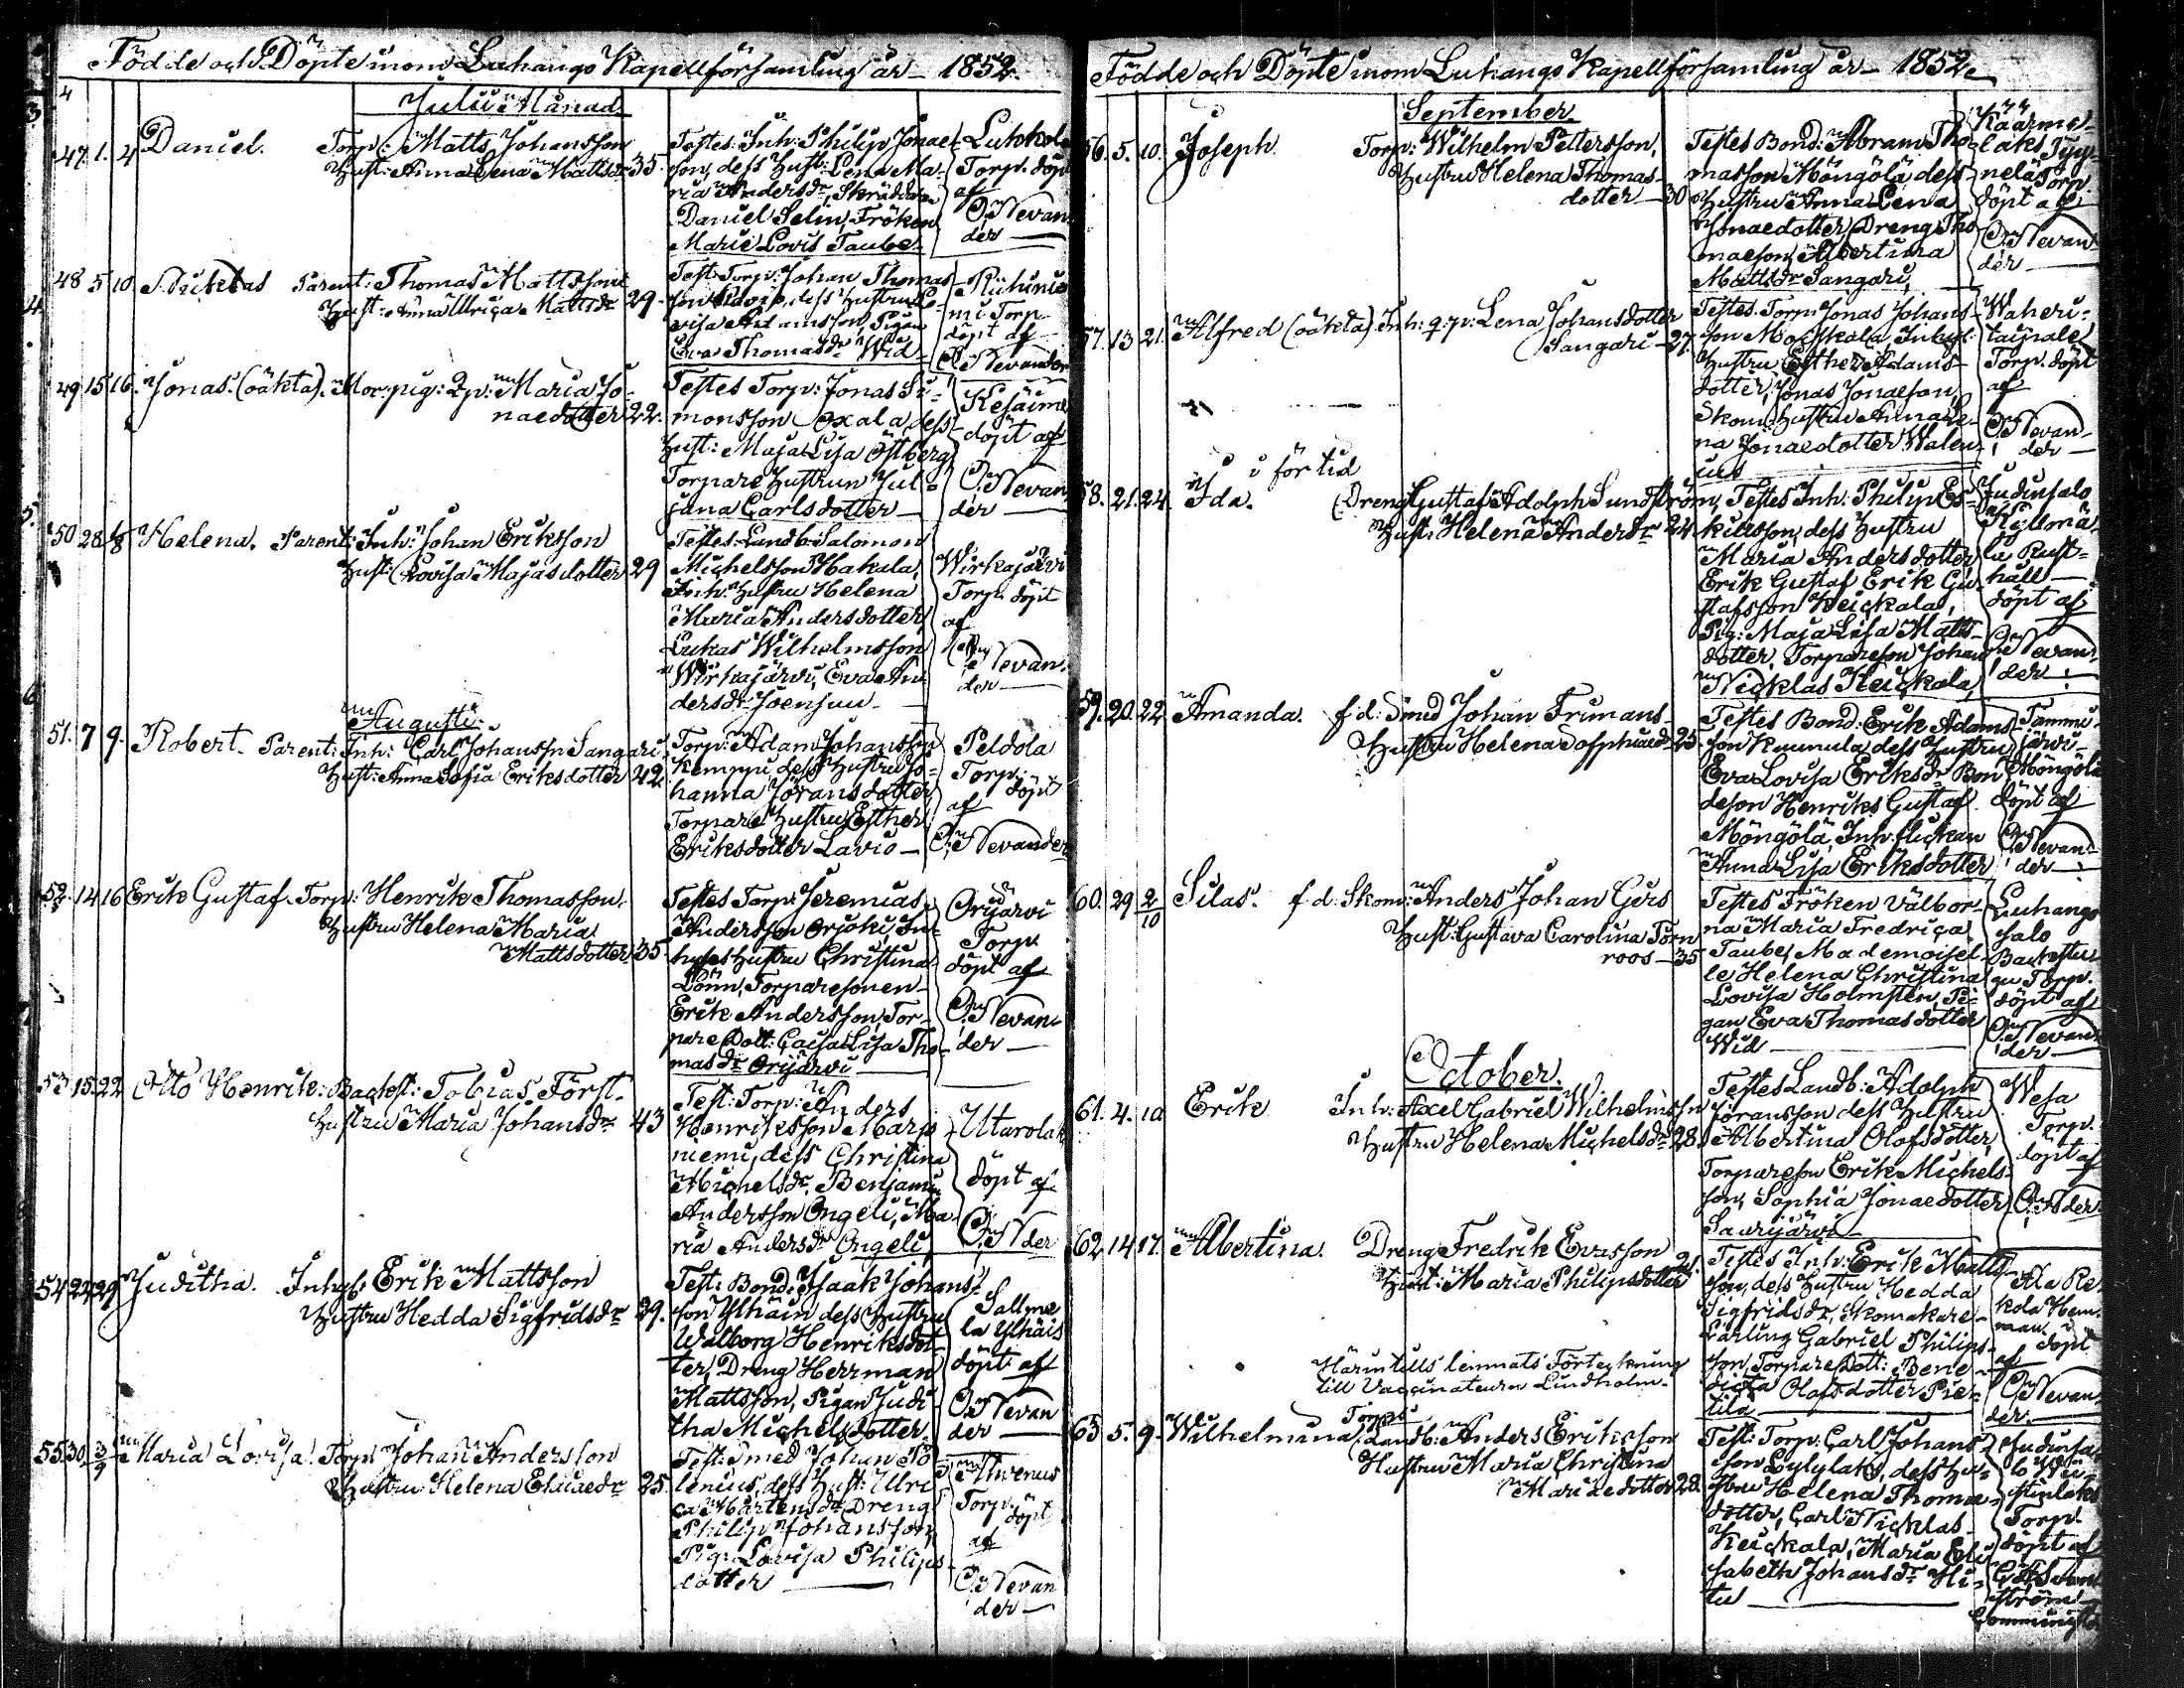 Födde och Döpte inom Luhango Kapellförsamling år 1852.
Julii Månad
47. 1. 4 Daniel. Torp: Matts Johansson
Hust: Anna Lena Mattsdr 35.
Testes: Inh: Philip Jonae-
son, dess Hust: Lena Ma-
ria Andersdr, Skräddaren
Daniel Selin, Fröken
Marie Lovis Taube.
Torp. döpt
af
O. Nevan
der
48 5 10 Parent: Thomas Mattsson
Hust: Anna Ulrica Mattsdr 29.
Test: Torp: Johan Thomas
son dess Hustru Lo-
visa Adamsson, Pigan
Eva Thomasdr Wid
mi Torp
döpt af
O. Nevander
49 15 16. Jonas. (oäkta). Mor: pig: Qp: Maria Jo-
naedotter 22.
Testes Torp: Jonas Si-
monsson Oxala, dess
Hust: Maja Lisa Östberg
Torpare Hustrun Jul-
jana Carlsdotter
Kesäime
döpt af
O. Nevan
der
50 28 1/8 Helena. Parent: Inh: Johan Eriksson
Hust: Lovisa Majasdotter 29
Testes: Landb: Salomon
Michelsson Hakala,
Inh: Hustru Helena
Maria Andersdotter
Lukas Wilhelmsson
Wirkajärvi, Eva An-
dersdr Joensuu
Wirkajärvi
Torp. döpt
af
O. Nevan-
der
Augusti.
51. 7 9. Robert. Parent: Inh: Carl Johanssn Sangari
Hust: Anna Sofia Eriksdotter 42
Torp: Adam Johansson
Kemppi dess Hustru Jo-
hanna Göransdotter
Torpare Hustru Esther
Eriksdotter Lavio
Peldola
Torp.
döpt
af
O. Nevander
52. 14 16 Erik Gustaf. Torp: Henrik Thomasson.
Hustru Helena Maria
Mattsdotter 35
Testes Torp: Jeremias
Andersson Orjoki In-
hyses Hustru Christina
Lönn, Torparesonen
Erik Andersson, Tor-
pare Dott: Caisa Lisa Tho-
masdr Orijärvi
Orijärvi
Torp.
döpt af
O. Nevan-
der
53 15. 22 Otto Henrik: Backst: Tobias Först.
Hustru Maria Johansdr 43
Test: Torp: Anders
Henriksson Marjo
niemi, dess Christina
Michelsdr, Benjamin
Andersson Ongeli, Ma-
ria Andersdr Ongeli
Utarola
döpt af
O. Nder
54 22 29 Juditha. Inhys: Erik Mattsson
Hustru Hedda Sigfridsdr 39.
Test: Bond: Isaak Johans-
son Ylhäin dess Hustru
Walborg Henriksdot-
ter, Dreng Herrman
Mattsson, Pigan Judi-
tha Michelsdotter.
Sallme
la Ylhäis
döpt af
O. Nevan
der
55. 30. 3/9 Maria Lovisa. Torp: Johan Andersson
Hustru Helena Esaiaedr 25.
Test: Smed Johan Po-
lenius, dess Hust: Ulri
ca Mårtensdr Dreng
Philip Johansson,
Pig: Lovisa Philips
dotter
Ahvenus
Torp. döpt
af
O. Nevan
der
Födde och Döpte inom Luhango Kapellförsamling år 1852.
September
56. 5. 10. Joseph. Torp: Wilhelm Pettersson,
Hustru Helena Thomas-
dotter 30
Testes Bond: Abram Tho-
masson Möngölä, dess
Hustru Anna Lena
Jonaedotter, Dreng Tho
maeson, Albertina
Mattsdr Sangari,
Torp.
döpt af
O. Nevan
der
57. 13 21. Alfred (oäkta). Inh: q:p: Lena Johansdotter
Sangari 27.
Testes. Torp: Jonas Johans-
son Mockala, Inhys:
Hustru Esther Adams-
dotter, Jonas Jonaeson,
Skom: Hustru Anna Le-
na Jonaedotter Walen-
ius
Waheri-
taipale
Torp. döpt
af
O. Nevan-
der
i för tid
58. 21. 24. Ida. Dreng Gustaf Adolph Sundström,
Hust: Helena Andersdr 24
Testes Inh: Philip Es-
killsson, dess Hustru
Maria Andersdotter
Erik Gustaf Erik Gu-
stafsson Keickala,
Pig: Maja Lisa Matts-
dotter, Torpareson Johan
Nicklas Keickala,
Judinsalo
Kyllmä-
la Rust-
håll
döpt af
O. Nevan-
der
59. 20. 22 Amanda. f d: Smed Johan Frimans
Hustru Helena 25
Testes Bond: Erik Adams-
son Kunnula dess Hustru
Eva Lovisa Eriksdr Bon
deson Henriks Gustaf
Möngölä, Inh: flickan
Anna Lisa Eriksdotter
Tammi-
järvi
Möngölä
döpt af
O. Nevan-
der
60. 29 2/10 Silas. f d: Skom: Anders Johan Gers
Hust: Gustava Carolina Törn
roos 35
Testes Fröken Välbor-
na Maria Fredrica
Taube, Mademoisel-
le Helena Christina
Lovisa Holmsten, Pi-
gan Eva Thomasdotter
Wid
Luhango
salo
Backstu
gu Torp.
döpt af
O. Nevan-
der
October.
61. 4. 10 Erik Inh: Axel Gabriel Wilhelmssn
Hustru Helena Michelsdr 28.
Testes Landb: Adolph
Göransson dess Hustru
Albertina Olofsdotter,
Torpareson Erik Michels-
son, Sophia Jonaedotter
Saarijärvi
Wesa
Torp.
döpt af
O. Nder
62. 14 17. Albertina. Dreng Fredrik Ersson
Hust: Maria Philipsdotter 21.
Testes Inh: Erik Matts-
son, dess Hustru Hedda
Sigfridsdr, Skomakare-
Lärling Gabriel Philips-
son, Torpare Dott: Bene-
dicta Olofsdotter Piet-
tilä
Ala Re-
kola Hem-
man
döpt
af
O. Nevan-
der.
Härintills lemnats Förteckning
till Vaccinateuren Lindholm.
63 5. 9. Wilhelmina. Landb: Anders Eriksson
Hustru Maria Christina
Mariaedotter 28.
Test: Torp: Carl Johans-
son Lylylaks, dess Hu-
stru Helena Thomae-
dotter, Carl Nicklas
Keickala, Maria Eli-
sabeth Johansdr Hi-
tu
Judinsa-
lo
Torp.
döpt af
ström